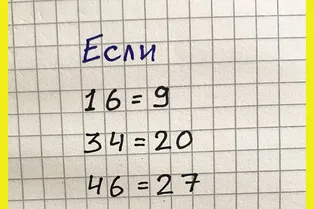 Если
16 = 9
34 = 20
46 = 27